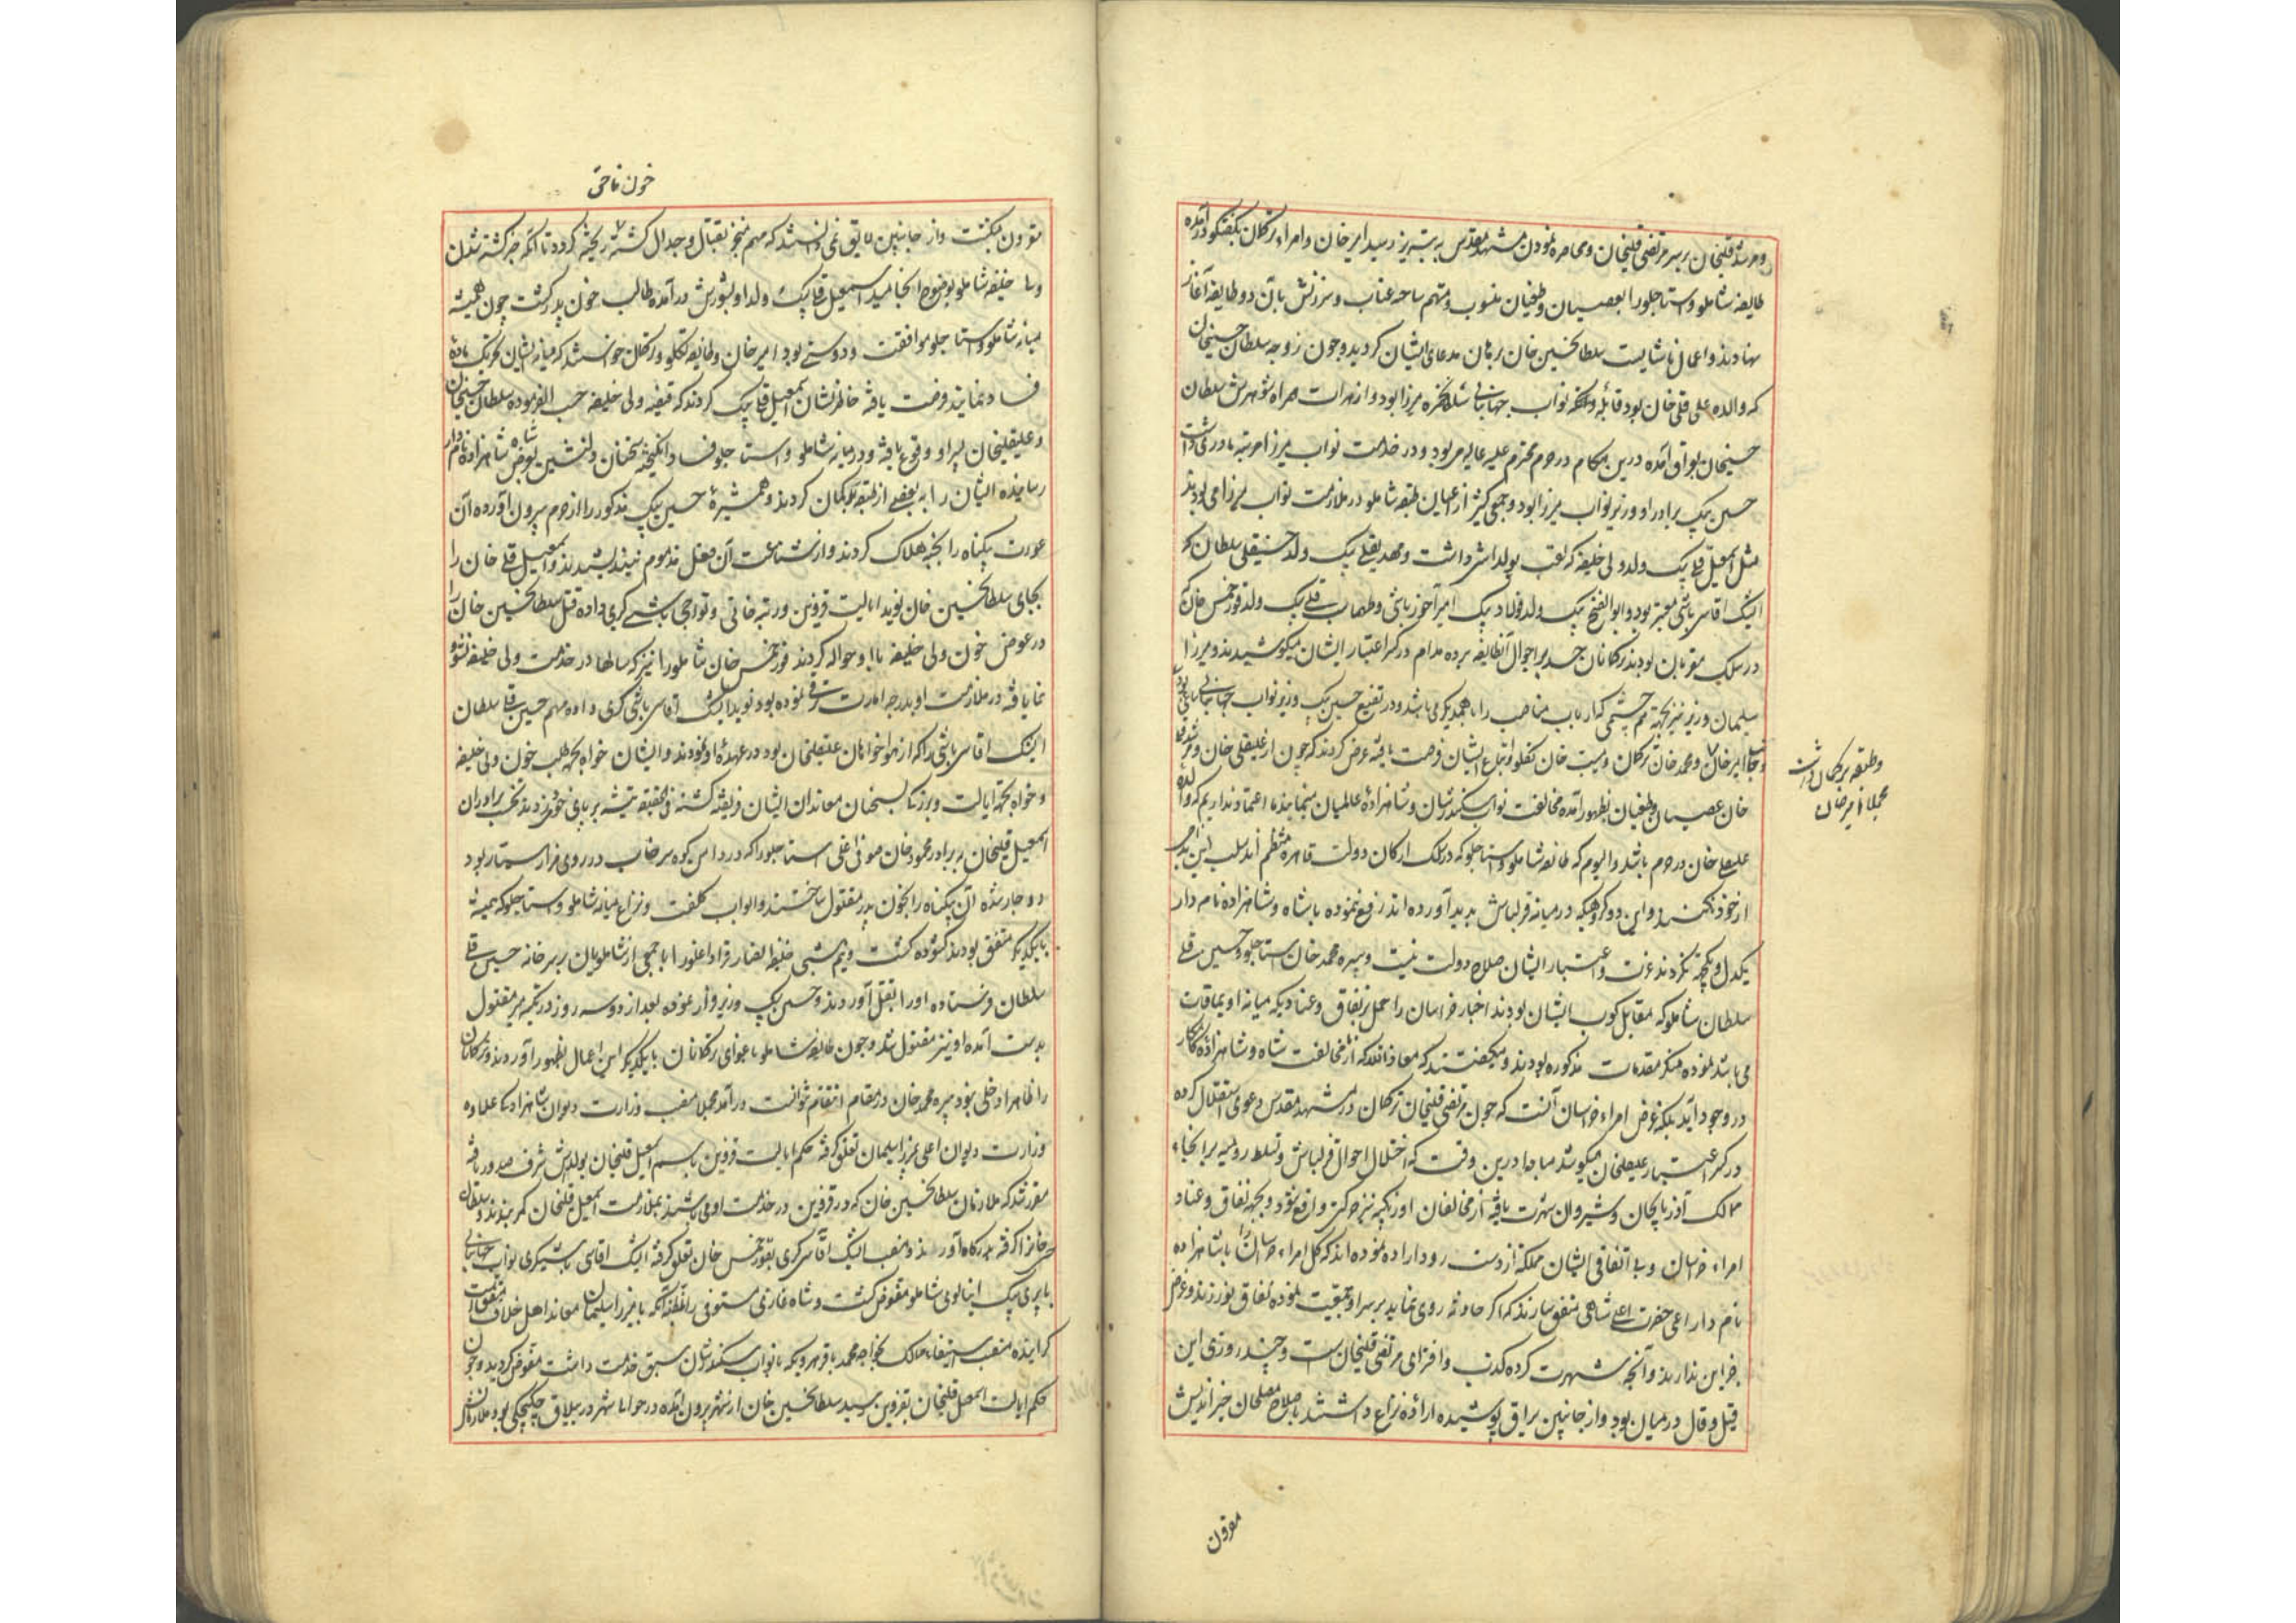 و مرشد قلیخان بر سر مرتضی قلیخان و محاصره نمودن مشهد مقدس به تبریز رسید امیر خان و امراء ترکمان بگفتگو درآمده
طایفه شاملو و استاجلو را بعصیان و طغیان منسوب و متهم ساخته عتاب و سرزنش بآن دو طایفه آغاز
نهادند و اعمال ناشایست سلطانحسین خان برهان مدعای ایشان گردید و چون زوجه سلطان حسینخان
که والده علی قلی خان بود قابله و ننکه نواب جهانبانی سلطان حمزه میرزا بود و از هرات همراه شوهرش سلطان
حسینخان بعراق آمده درین هنگام در حرم محترم علیه عالیه می بود و در خدمت نواب میرزا مرتبه مادری داشت
حسین بیک برادر او وزیر نواب میرزا بود و جمعی کثیر از اعیان طبقه شاملو در ملازمت نواب میرزا می بودند
مثل اسمعیل قلی بیک ولد ولی خلیفه که لقب یولداش داشت و مهدیقلی بیک ولد حسینقلی سلطان که
ایشک اقاسی باشی معتبر بود و ابوالفتح بیک ولد فولاد بیک امیرآخور باشی و طهماسب قلی بیک ولد قورخمس خان که
در سلک مقربان بودند ترکمانان حسد بر احوال آنطایفه برده مدام در کسر اعتبار ایشان میکوشیدند و میرزا
سلیمان وزیر نیز بجهة هم چشمی که ارباب مناصب را با همدیگر می باشد و در تضییع حسین بیک وزیر نواب جهانبانی ساعی بود
امیر خان و محمد خان ترکمان و مسیب خان تکلو و اتباع ایشان فرصت یافته عرض کردند که چون از علیقلی خان و مرشد قلی
وطبقه ترکمان داشت
مجملا امیر خان
خان عصیان و طغیان بظهور آمده مخالفت نواب سکندرشان و شاهزاده عالمیان مینمایند ما اعتماد نداریم که والده
علیقلی خان در حرم باشد و الیوم که طایفه شاملو و استاجلو که در سلک ارکان دولت قاهره منتظم اند سلب این
از خود نکنند و این دو کروهیکه در میانه قزلباش بدید آورده اند رفع ننموده با شاه و شاهزاده نامدار
یکدل و یکجهة نکردند عزت و اعتبار ایشان صلاح دولت نیست و پیره محمد خان استاجلو و حسین قلی
سلطان شاملو که مقابل کوب ایشان بودند اخبار خراسان را حمل بر نفاق و عنادیکه میانه اویماقات
می باشد نموده منکر مقدمات مذکوره بودند و میگفتند که معاذ الله که از مخالفت شاه و شاهزاده کامکار
در وجود آید بلکه غرض امراء خراسان آنست که چون مرتضی قلیخان ترکمان در مشهد مقدس دعوی استقلال کرده
در کسر اعتبار علیقلیخان میکوشد مبادا درین وقت که اختلال احوال قزلباش و تسلط رومیه بر انحاء
ممالک آذربایجان و شیروان شهرت یافته از مخالفان اوزبکیه نیز حرکتی واقع شود و بجهة نفاق و عناد
امراء خراسان و بی اتفاقی ایشان مملکة از دست رود اراده نموده اند که کل امراء خراسان را با شاهزاده
نامدار اعنی حضرت اعلی شاهی متفق سازند که اگر حادثه روی نماید بر سر او جمعیت نموده نفاق نورزند و غرض
جز این ندارند و آنچه شهرت کرده کذب و افترای مرتضی قلیخان است و چند روزی این
قیل و قال در میان بود و از جانبین یراق پوشیده اراده نزاع داشتند باصلاح مصلحان خیر اندیش
مقرون
خون ناحق
مقرون نگشت و از جانبین لایق نمی دانستند که مهم منجر بقتال و جدال گشته ریخته گردد تا آنکه خبر کشته شدن
ولی خلیفه شاملو بوضوح انجامید اسمعیل قلی بیک ولد او بشورش درآمده طالب خون پدر گشت چون همیشه
میانه شاملو و استاجلو موافقت و دوستی بود امیر خان و طایفه تکلو و ترکمان خواستند که میانه ایشان تحریک ماده
فساد نمایند فرصت یافته خاطرنشان اسمعیل قلی بیک کردند که قضیه ولی خلیفه حسب الفرموده سلطان حسینخان
و علیقلیخان پسر او وقوع یافته و در میانه شاملو و استاجلو فساد انگیخته سخنان دلنشین بعرض شاه و شاهزاده نامدار
رسانیده ایشان را به بعضی از طبقه بدگمان کردند و همشیرۀ حسین بیک مذکور را از حرم بیرون آورده آن
عورت بیگناه را بخبه هلاک کردند و از شناعت آن فعل مذموم نیندیشیدند و اسمعیل قلی خان را
بجای سلطانحسین خان نوید ایالت قزوین و رتبه خانی و تواجی باشی گری داده قتل سلطانحسین خان را
در عوض خون ولی خلیفه باو حواله کردند قورخمس خان شاملو را نیز که سالها در خدمت ولی خلیفه نشو و
نما یافته در ملازمت او بدرجه امارت ترقی نموده بود نوید ایشک آقاسی باشی گری داده مهم حسین قلی سلطان
ایشک اقاسی باشی را که از هواخواهان علیقلیخان بود در عهدۀ او نمودند و ایشان خواه بجهة طلب خون ولی خلیفه
و خواه بجهة ایالت و بزرگی بسخنان معاندان ایشان فریفته گشته فی الحقیقه تیشه بر پای خود زدند نخست برادران
اسمعیل قلیخان به برادر محمود خان صوفی اغلی استاجلو را که در دامن کوه سرخاب در روی مزارستان بود
دوچار شده آن بیگناه را بخون پدر مقتول ساختند و ابواب کلفت و نزاع میانه شاملو و استاجلو که همیشه
با یکدیگر متفق بودند گشوده گشت و نیم شبی قراداغلو را با جمعی از شاملویان بر سر خانه حسین قلی
سلطان فرستاده او را بقتل آوردند و حسین بیک وزیر فرار نموده بعد از دو سه روز در تکیه میر مقتول
بدست آمده او نیز مقتول شد و چون طایفه شاملو باغوای ترکمانان با یکدیگر این اعمال بظهور آوردند و ترکمانان
را ظاهرا دخلی نبود پیره محمد خان در مقام انتقام نتوانست درآمد مجملا منصب وزارت دیوان شاهزاده علاوه
وزارت دیوان اعلی بمیرزا سلیمان تعلق گرفته حکم ایالت قزوین باسم اسمعیل قلیخان یولداش شرف صدور یافته
مقرر شد که ملازمان سلطانحسین خان که در قزوین در خدمت او می باشند بملازمت اسمعیل قلیخان کمر بندند و سلطان
حسین خانرا گرفته بدرگاه آورند و منصب ایشک آقاسی گری بقورخمس خان تعلق گرفته ایشک اقاسی باشیگری نواب جهانبانی
بابری بیک اینالوی شاملو مفوض گشت و شاه غازی مستوفی را بمظنه آنکه با میرزا سلیمان معاند اهل خلاف متفق است
گرانیده منصب استیفاء ممالک بخواجه محمد باقر هرویکه با نواب سکندرشان سبق خدمت داشت مفوض گردید و چون
حکم ایالت اسمعیل قلیخان بقزوین رسید سلطانحسین خان از شهر بیرون آمده در حوالی شهر در ییلاق بود ملازمان